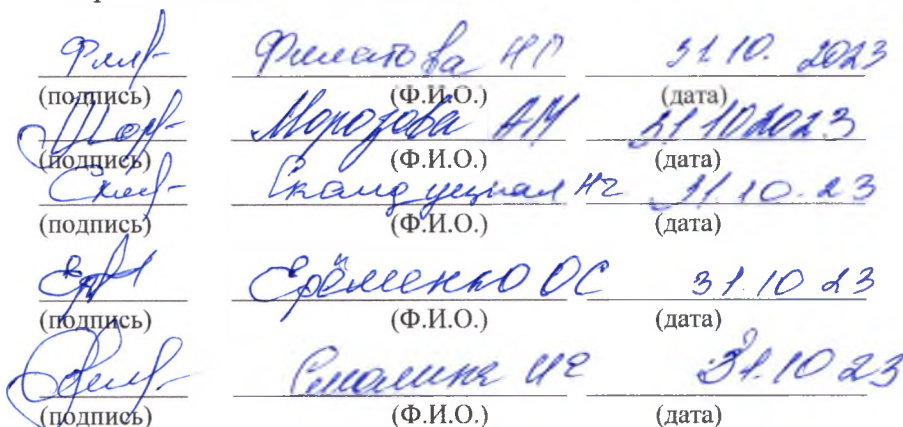 Филатова НП 31.10. 2023
(подпись) (Ф.И.О.) (дата)
Морозова АМ 31 10 2023
(подпись) (Ф.И.О.) (дата)
31.10.23
(подпись) (Ф.И.О.) (дата)
Ерёменко ОС 31.10 23
(подпись) (Ф.И.О.) (дата)
Смолина 31.10 23
(подпись) (Ф.И.О.) (дата)